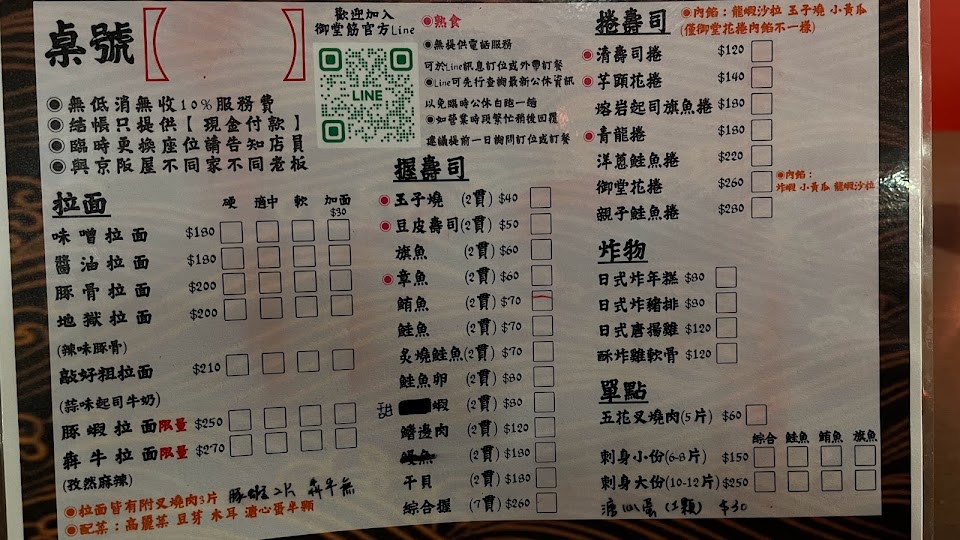 桌號【 】
歡迎加入
御堂筋官方Line
LINE
◉無低消無收10%服務費
◉結帳只提供【現金付款】
◉臨時更換座位請告知店員
◉與京阪屋不同家不同老板
◉熟食
◉無提供電話服務
可於Line訊息訂位或外帶訂餐
◉Line可先行查詢最新公休資訊
以免臨時公休白跑一趟
◉如營業時段繁忙稍後回覆
建議提前一日詢問訂位或訂餐
拉面
硬 適中 軟 加面
$30
味噌拉面 $180
醬油拉面 $180
豚骨拉面 $200
地獄拉面 $200
(辣味豚骨)
敲好粗拉面 $210
(蒜味起司牛奶)
豚蝦拉面限量 $250
犇牛拉面限量 $270
(孜然麻辣)
◉拉面皆有附叉燒肉3片 豚蝦2片 犇牛無
◉配菜：高麗菜 豆芽 木耳 溏心蛋半顆
握壽司
◉玉子燒 (2貫) $40
◉豆皮壽司 (2貫) $50
旗魚 (2貫) $60
◉章魚 (2貫) $60
鮪魚 (2貫) $70
鮭魚 (2貫) $70
炙燒鮭魚 (2貫) $70
鮭魚卵 (2貫) $80
甜蝦 (2貫) $80
鰭邊肉 (2貫) $120
鰻魚 (2貫) $180
干貝 (2貫) $180
綜合握 (7貫) $260
捲壽司
◉內餡：龍蝦沙拉 玉子燒 小黃瓜
(僅御堂花捲內餡不一樣)
◉清壽司捲 $120
◉芋頭花捲 $140
熔岩起司旗魚捲 $180
◉青龍捲 $180
洋蔥鮭魚捲 $220
御堂花捲 $260
◉內餡：
炸蝦 小黃瓜 龍蝦沙拉
親子鮭魚捲 $280
炸物
日式炸年糕 $80
日式炸豬排 $90
日式唐揚雞 $120
酥炸雞軟骨 $120
單點
五花叉燒肉(5片) $60
綜合 鮭魚 鮪魚 旗魚
刺身小份(6-8片) $150
刺身大份(10-12片) $250
溏心蛋(1顆) $30